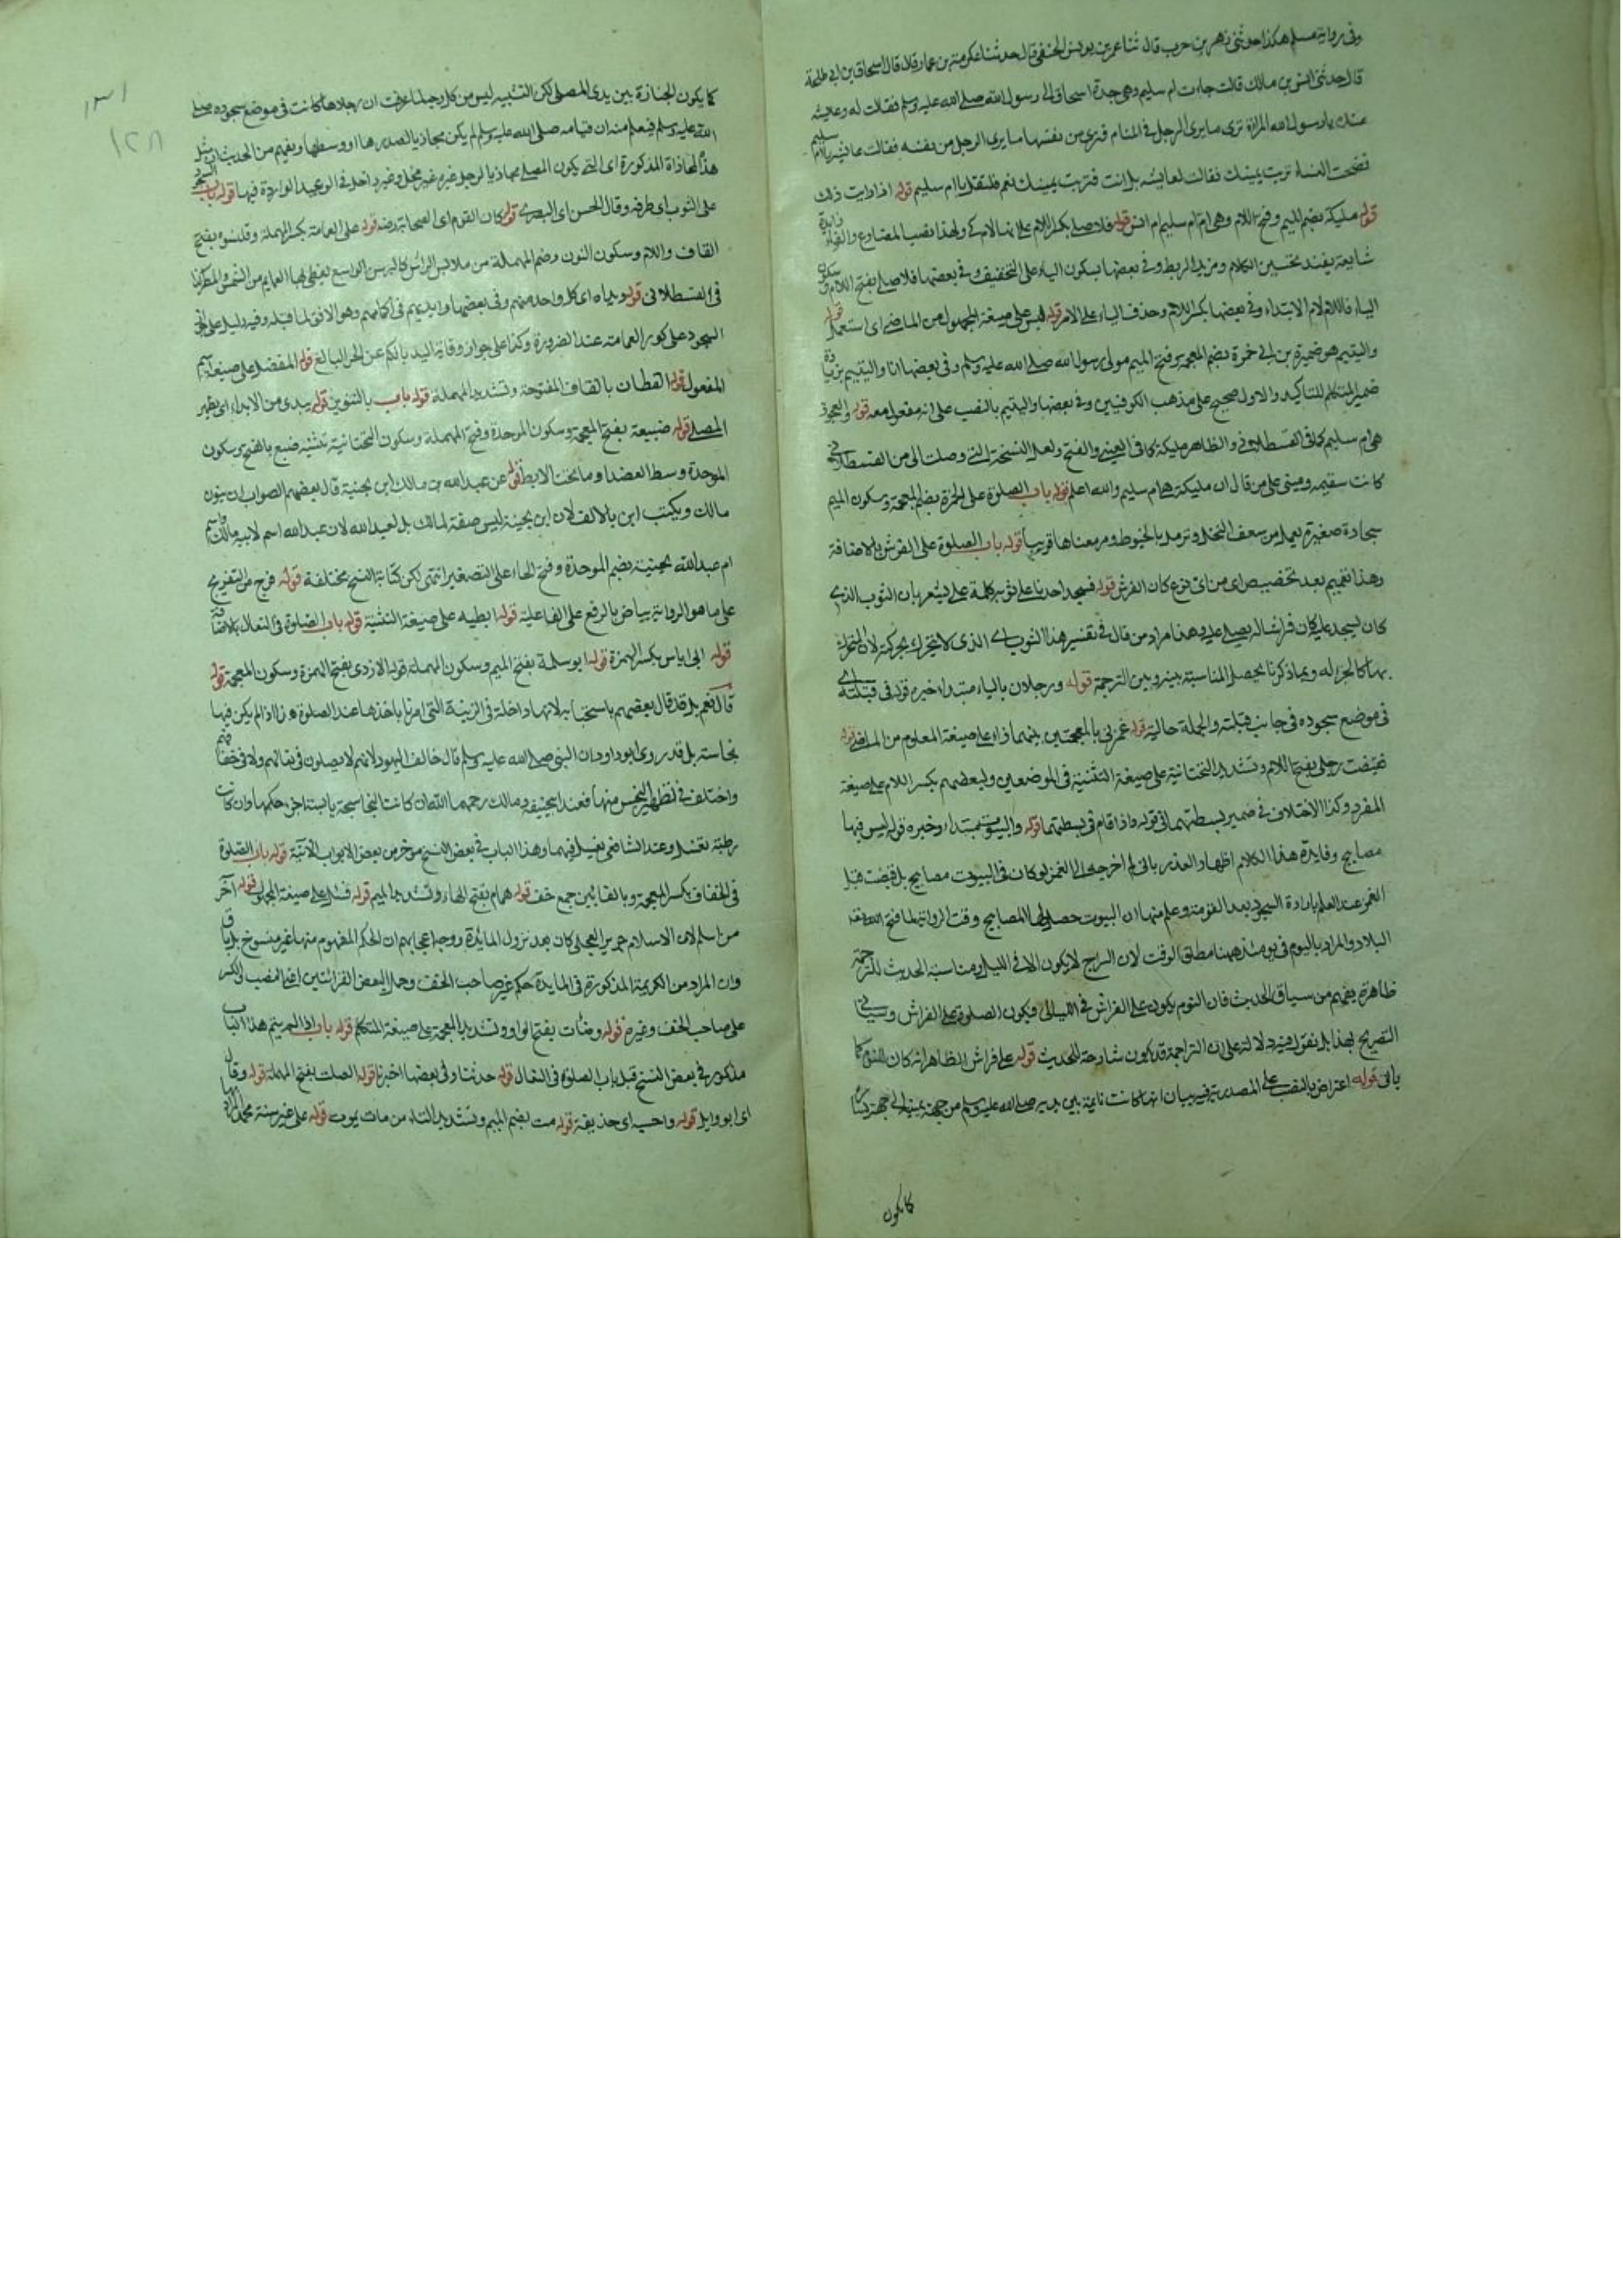 وفى رواية مسلم هكذا حدثنى زهير بن حرب قال ثنا عمر بن يونس الحنفى قال حدثنا عكرمة بن عمار قال قال اسحاق بن ابى طلحة
قال حدثنى انس بن مالك قالت جاءت ام سليم وهى جدة اسحاق الى رسول الله صلى الله عليه وسلم فقالت له وعايشه
عنده يا رسول الله المراة ترى ما يرى الرجل فى المنام فترى من نفسها ما يرى الرجل من نفسه فقالت عايشه يا ام سليم
فضحت النساء تربت يمينك فقالت لعايشه بل انت فتربت يمينك نعم فلتغتسل يا ام سليم قوله اذا رايت ذلك
قوله مليكة بضم الميم وفتح اللام وهى ام ام سليم ام انس قوله فلاصلى بكسر اللام على انها لام كى ولهذا نصب المضارع والفاء زايدة
شايعة يفيد تحسين الكلام ومزيد الربط وفى بعضها بسكون الياء على التخفيف وفى بعضها فلاصلى بفتح اللام وسكون
الياء فاللام لام الابتداء وفى بعضها بكسر اللام وحذف الياء على الامر قوله لبس على صيغة المجهول من الماضى اى استعمل قوله
واليتيم هو ضميرة بن ابى ضمرة بضم المعجمة وفتح الميم مولى رسول الله صلى الله عليه وسلم وفى بعضها انا واليتيم بزيادة
ضمير المتكلم للتاكيد والاول صحيح على مذهب الكوفيين وفى بعضها واليتيم بالنصب على انه مفعول معه قوله والعجوز
هى ام سليم كما فى القسطلانى والظاهر مليكة كما فى العينى والفتح ولعل النسخة التى وصلت الى من القسطلانى
كانت سقيمه ومبنى على من قال ان مليكة هى ام سليم والله اعلم قوله باب الصلوة على الخمرة بضم المعجمة وسكون الميم
سجادة صغيرة يعمل من سعف النخل وترمل بالخيوط ومر معناها قريبا قوله باب الصلوة على الفرش بالاضافة
وهذا تعميم بعد تخصيص اى من اى نوع كان الفرش قوله فيسجد احدنا على ثوبه كلمة على يشعر بان الثوب الذى
كان يسجد عليه كان فراشا له يصلى عليه وهذا مراد من قال فى تفسير هذا الثوب اى الذى لا يتحرك بحركته لان المتحرك
بها كالجزء له وبما ذكرنا يحصل المناسبة بينه وبين الترجمة قوله ورجلاى بالياء مبتدا خبره قوله فى قبلته اى
فى موضع سجوده فى جانب قبلته والجملة حالية قوله غمزنى بالمعجمتين بينهما زاء على صيغة المعلوم من الماضى قوله
فقبضت رجلى بفتح اللام وتشديد التحتانية على صيغة التثنية فى الموضعين ولبعضهم بكسر اللام على صيغة
المفرد وكذا الاختلاف فى ضمير بسطتهما فى قوله واذا قام فى بسطتهما قوله والبيوت مبتداء وخبره قوله ليس فيها
مصابيح وفايدة هذا الكلام اظهار العذر بانى لم احوجه الى الغمز لو كان فى البيوت مصابيح بل قبضت قبل
الغمز عند العلم بارادة السجود بعد الغمز منه وعلم منها ان البيوت حصل لها المصابيح وقت الرواية لما فتح الله تعالى
البلاد والمراد باليوم فى يومئذ ههنا مطلق الوقت لان السرج لا يكون الا فى الليل ومناسبة الحديث للترجمة
ظاهرة يفهم من سياق الحديث فان النوم يكون على الفراش فى الليالى فيكون الصلوة على الفراش وسيأتى
التصريح بهذا بل نقول فيه دلالة على ان التراجم قد يكون شارحة للحديث قوله على فراش الظاهر انه كان للنوم كما
ياتى قوله اعتراض بالنصب على المصدرية فيه بيان انها كانت نايمة بين يديه صلى الله عليه وسلم من جهة يمينه الى جهة
كما يكون
١٣١
١٢٨
كما يكون الجنازة بين يدى المصلى لكن التشبيه ليس من كل وجه لما عرفت ان رجلاها كانت فى موضع سجوده صلى
الله عليه وسلم فيعلم منه ان قيامه صلى الله عليه وسلم لم يكن محاذيا لصدرها او وسطها ويفهم من الحديث ان مثل
هذه المحاذاة المذكورة اى التى يكون المصلى محاذيا لرجل غيره غير مخل وغير داخل فى الوعيد الواردة فيها قوله باب السجود
على الثوب اى طرفه وقال الحسن اى البصرى قوله كان القوم اى الصحابة رضه قوله على العمامة بكسر المهملة وقلنسوة بفتح
القاف واللام وسكون النون وضم المهملة من ملابس الراس كالبرنس الواسع يغطى بها العمايم من الشمس والمطر كذا
فى القسطلانى قوله ويداه اى كل واحد منهم وفى بعضها وايديهم فى اكمامهم وهو الاوفق لما قبله وفيه دليل على
السجود على كور العمامة عند الضرورة وكذا على جواز وقاية اليد بالكم عن الحر البالغ قوله المفضل على صيغة اسم
المفعول قوله القطان بالقاف المفتوحة وتشديد المهملة قوله باب بالتنوين قوله يبدى من الابداء اى يظهر
المصلى قوله ضبعيه بفتح المعجمة وسكون الموحدة وفتح المهملة وسكون التحتانية تثنية ضبع بالفتح وسكون
الموحدة وسط العضد او ما تحت الابط قوله عن عبد الله بن مالك ابن بحينة قال بعضهم الصواب ان ينون
مالك ويكتب ابن بالالف لان ابن بحينة ليس صفة لمالك بل لعبد الله لان عبد الله اسم لابيه مالك واسم
ام عبد الله بحينة بضم الموحدة وفتح الحاء على التصغير انتهى لكن كتابة النسخ مختلفة قوله فرج من التفريج
على ما هو الرواية بياض بالرفع على الفاعلية قوله ابطيه على صيغة التثنية قوله باب الصلوة فى النعال بالاضافة
قوله ابى اياس بكسر الهمزة قوله ابو سلمة بفتح الميم وسكون المهملة قوله الازدى بفتح الهمزة وسكون المعجمة قوله
قال نعم بل قد قال بعضهم باستحبابه لانها داخلة فى الزينة التى امرنا باخذها عند الصلوة هذا اذا لم يكن فيها
نجاسة بل قد روى ابو داود ان النبى صلى الله عليه وسلم قال خالفوا اليهود لانهم لا يصلون فى نعالهم ولا فى خفافهم
واختلف فى تطهير النجس منها فعند ابى حنيفه ومالك رحمهما الله ان كانت النجاسة يابسة اجزى حكها وان كانت
رطبة تغسل وعند الشافعى يغسل فيهما وهذا الباب فى بعض النسخ موخر من بعض الابواب الآتية قوله باب الصلوة
فى الخفاف بكسر المعجمة وبالفائين جمع خف قوله همام بفتح الهاء وتشديد الميم قوله فسئل على صيغة المجهول قوله آخر
من اسلم لان الاسلام جرير البجلى كان بعد نزول المائدة ووجه اعجابهم ان الحكم المفهوم منها غير منسوخ بل باق
وان المراد من الكريمة المذكورة فى المايدة حكم غير صاحب الخف وحمل البعض القرائتين اعنى النصب والكسر
على صاحب الخف وغيره قوله وضأت بفتح الواو وتشديد المعجمة على صيغة المتكلم قوله باب اذا لم يتم هذا الباب
مذكور فى بعض النسخ قبل باب الصلوة فى النعال قوله حدثنا وفى بعضها اخبرنا قوله الصلت بفتح المهملة قوله وقال
اى ابو وايل قوله واحسبه اى حذيفة قوله مت بضم الميم وتشديد التاء من مات يموت قوله على غير سنة محمد